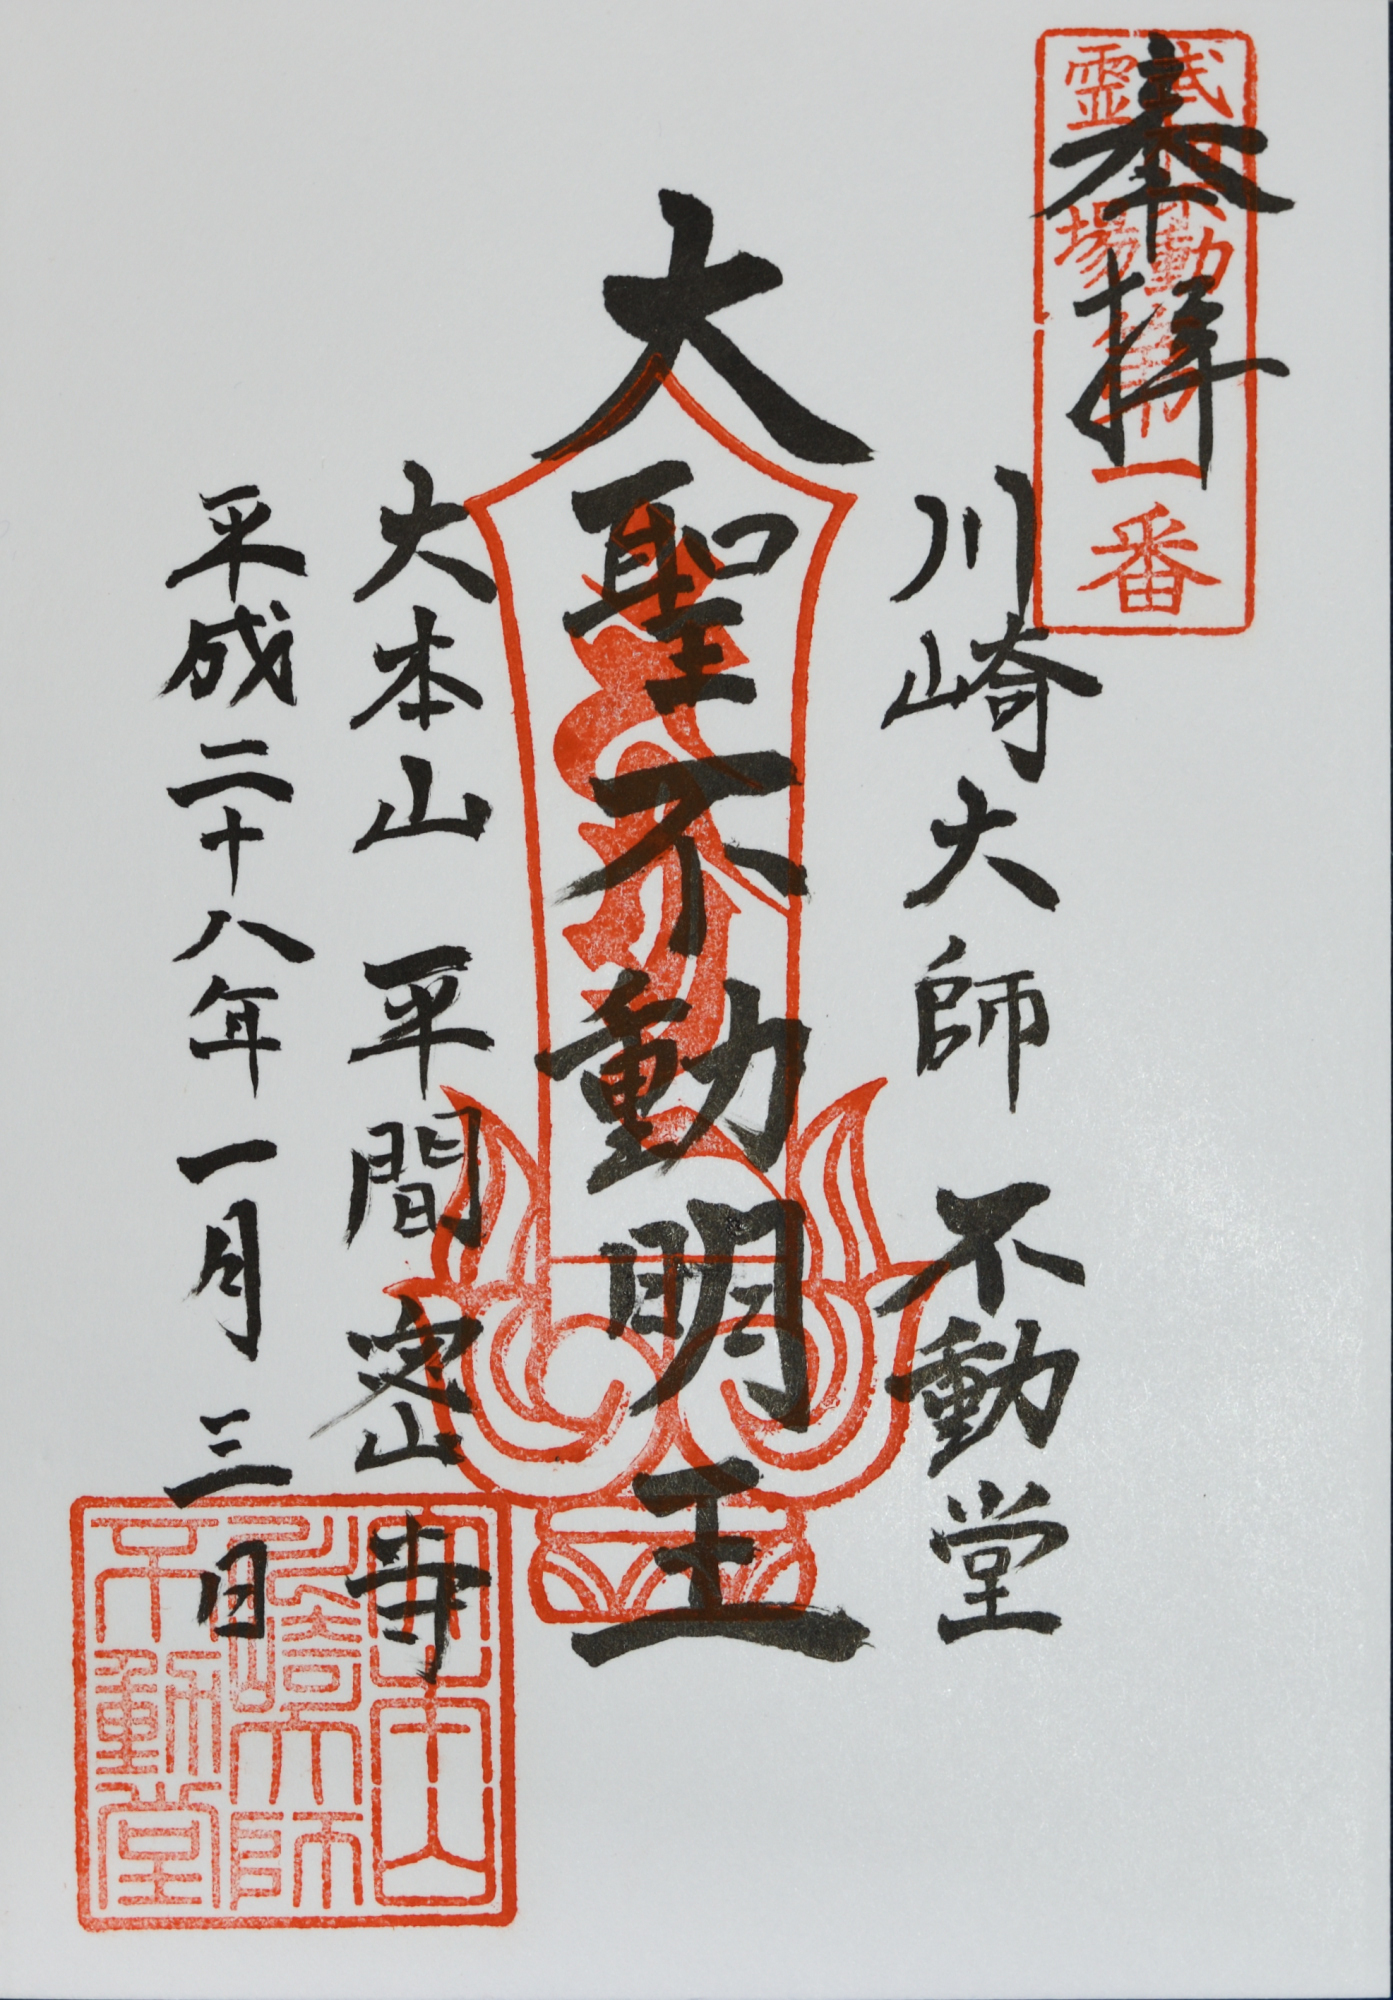 奉拝
武相不動尊
霊場
第一番
川崎大師 不動堂
大聖不動明王
大本山 平間寺
平成二十八年一月三日
大本山
川崎大師
不動堂